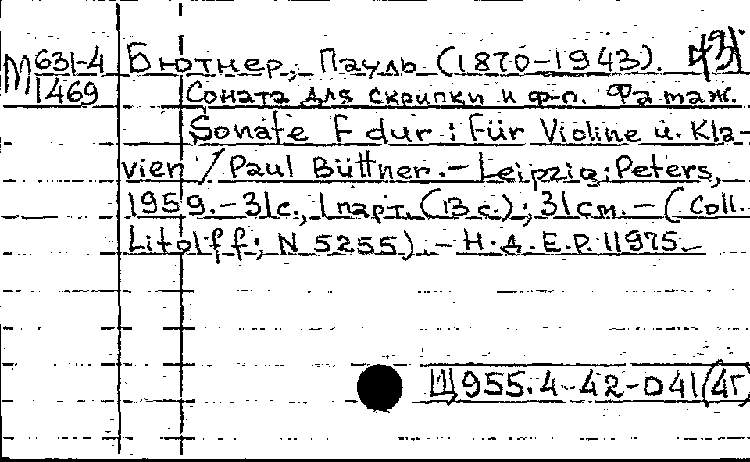 М 631-4 Бютнер, Пауль (1870-1943).
1469 Соната для скрипки и ф-п. Фа маж.
Sonate F dur : Für Violine u. Kla-
vier / Paul Büttner. – Leipzig : Peters,
1959. – 31 с., 1 парт. (13 с.) ; 31 см. – (Coll.
Litolff ; N 5255). – Н. д. E.P. 11975
Щ 955.4-42-041(4Г)